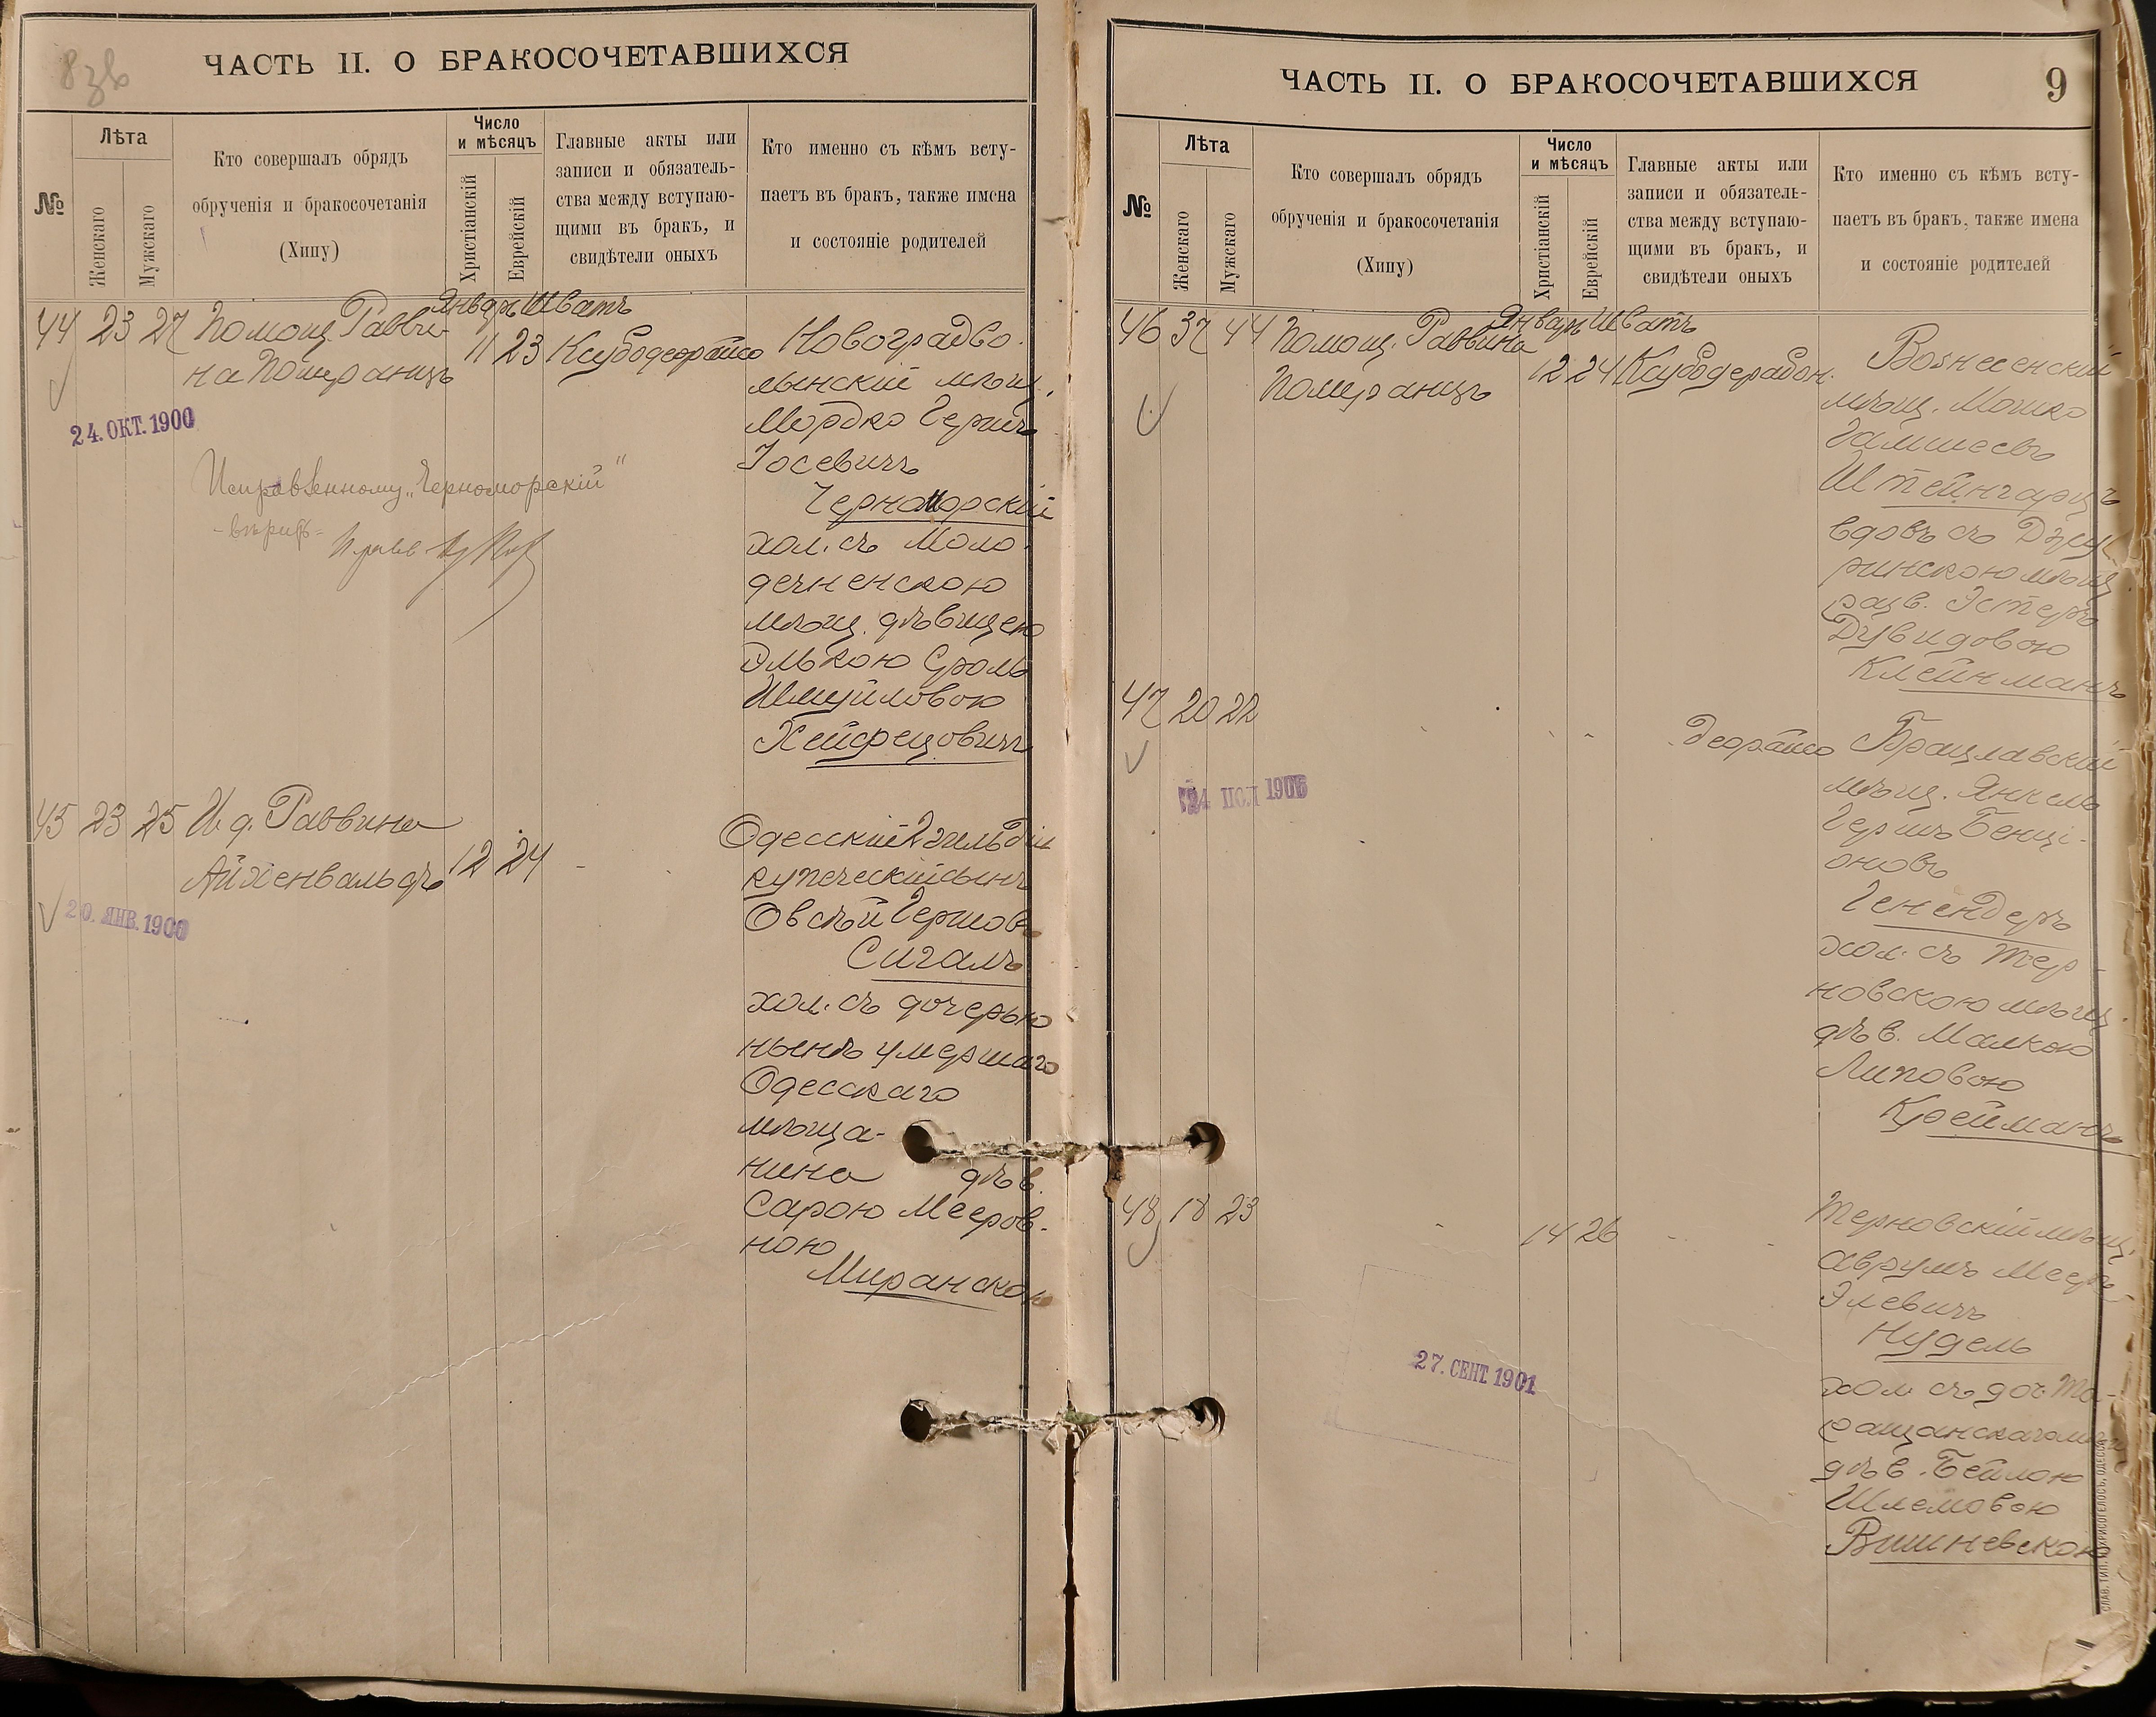 8 зв
ЧАСТЬ II. О БРАКОСОЧЕТАВШИХСЯ
№
Лѣта
Женскаго
Мужскаго
Кто совершалъ обрядъ
обрученія и бракосочетанія
(Хипу)
Число
и мѣсяцъ
Христіанскій
Еврейскій
Главные акты или
записи и обязатель-
ства между вступаю-
щими въ бракъ, и
свидѣтели оныхъ
Кто именно съ кѣмъ всту-
паетъ въ бракъ, также имена
и состояніе родителей
Январь Шватъ
44 23 27 Помощ. Равви-
на Померанцъ
11 23
Новоградво-
лынскій мѣщ.
Мордко Гершъ
Іосевичъ
Черноморскій
хол. съ Моло-
дечненскою
мѣщ. дѣвицею
Элькою Сроль
Шмуйловою
Хейфецовичъ
24. ОКТ. 1900
Исправленному „Черноморскій"
-вѣрить-
45 23 25 И. д. Раввина
Айхенвальдъ
12 24 -
Одесскій 2 гильдіи
купеческій сынъ
Овсѣй Гершовъ
Сигалъ
хол. съ дочерью
нынѣ умершаго
Одесскаго
мѣща-
нина дѣв.
Сарою Мееров-
ною
Миранскою
20. ЯНВ. 1900
ЧАСТЬ II. О БРАКОСОЧЕТАВШИХСЯ
9
№
Лѣта
Женскаго
Мужскаго
Кто совершалъ обрядъ
обрученія и бракосочетанія
(Хипу)
Число
и мѣсяцъ
Христіанскій
Еврейскій
Главные акты или
записи и обязатель-
ства между вступаю-
щими въ бракъ, и
свидѣтели оныхъ
Кто именно съ кѣмъ всту-
паетъ въ бракъ, также имена
и состояніе родителей
Январь Шватъ
46 37 44 Помощ. Раввина
Померанцъ
12 24
Вознесенскій
мѣщ. Мошко
Штейнгарцъ
вдовъ съ
мѣщ
разв. Эстеръ
Дувидовою
Клейманъ
47 20 22
Брацлавскій
мѣщ. Янкель
Гершъ Бенці-
оновъ
Генендеръ
хол. съ Тер-
новскою мѣщ.
дѣв. Малкою
Липовою
Крейманъ
48 18 23
14 26
Терновскій мѣщ.
Аврумъ Меер
Элевичъ
Нудель
хол. съ доч. Та-
ращанскаго мѣщ
дѣв. Бейлою
Шлемовою
Вишневскою
27. СЕНТ. 1901